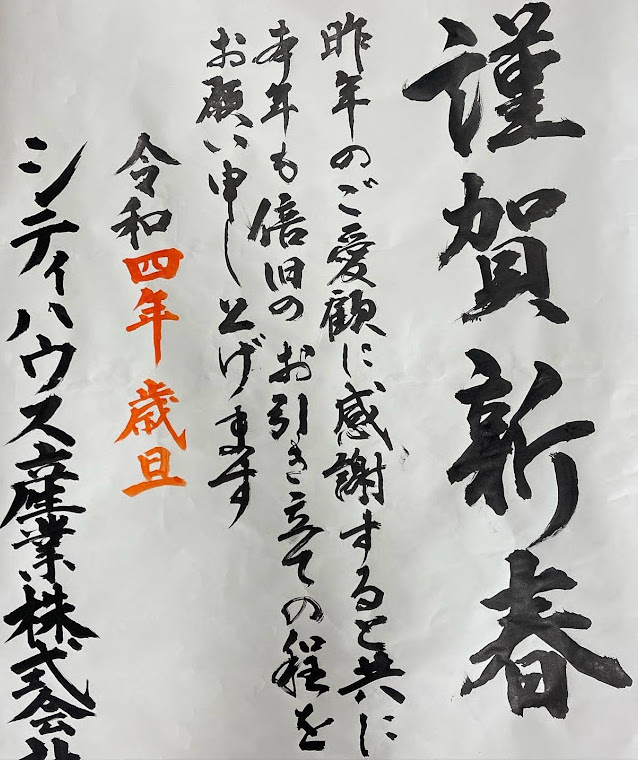 謹賀新春
昨年のご愛顧に感謝すると共に
本年も倍旧のお引き立ての程を
お願い申し上げます
令和四年 歳旦
シティハウス産業株式会社